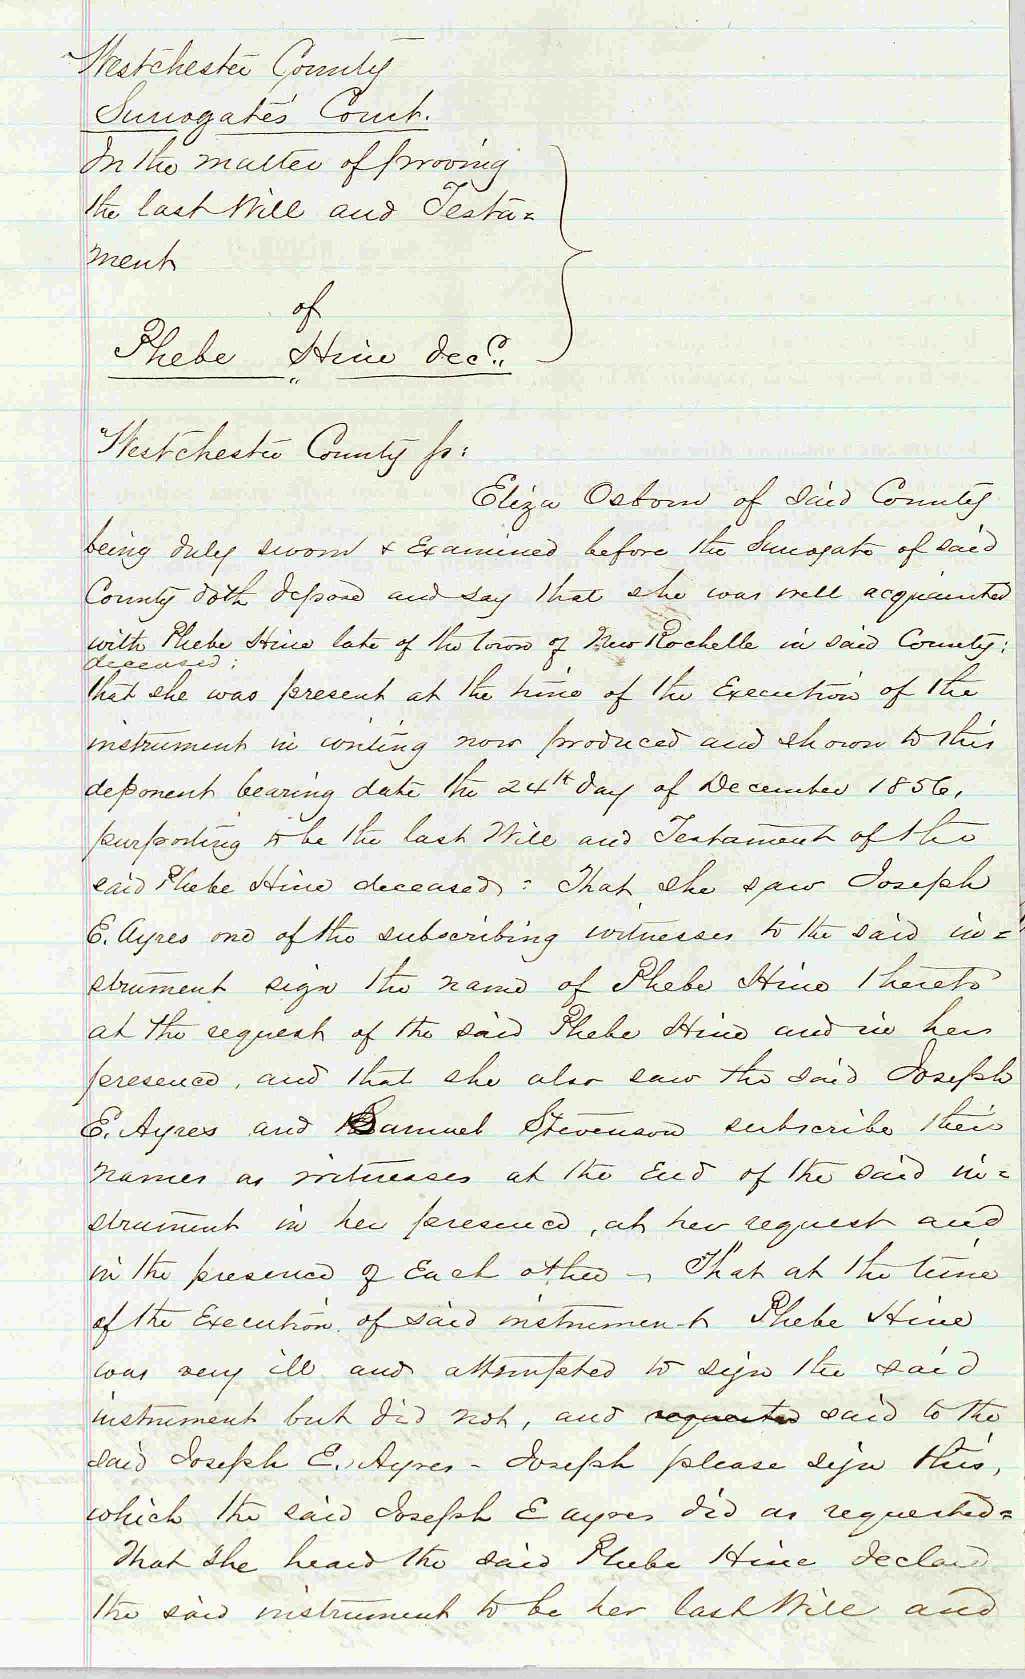 Westchester County
Surrogate's Court.
In the matter of prooving
the last Will and Testa=
ment
of
Phebe Hine decd.
Westchester County ss:
Eliza Osborn of said County
being duly sworn & Examined before the Surrogate of said
County doth depose and say that she was well acquainted
with Phebe Hine late of the town of New Rochelle in said County;
deceased;
that she was present at the time of the Execution of the
instrument in writing now produced and shown to this
deponent bearing date the 24th day of December 1856,
purporting to be the last Will and Testament of the
said Phebe Hine deceased: That she saw Joseph
E. Ayres one of the subscribing witnesses to the said in=
strument sign the name of Phebe Hine thereto
at the request of the said Phebe Hine and in her
presence, and that she also saw the said Joseph
E. Ayres and Samuel Stevenson subscribe their
names as witnesses at the End of the said in=
strument in her presence, at her request and
in the presence of Each other - That at the time
of the Execution of said instrument Phebe Hine
was very ill and attempted to sign the said
instrument but did not, and requested said to the
said Joseph E. Ayres - Joseph please sign this,
which the said Joseph E ayres did as requested=
That she heard the said Phebe Hine declare
the said instrument to be her last Will and